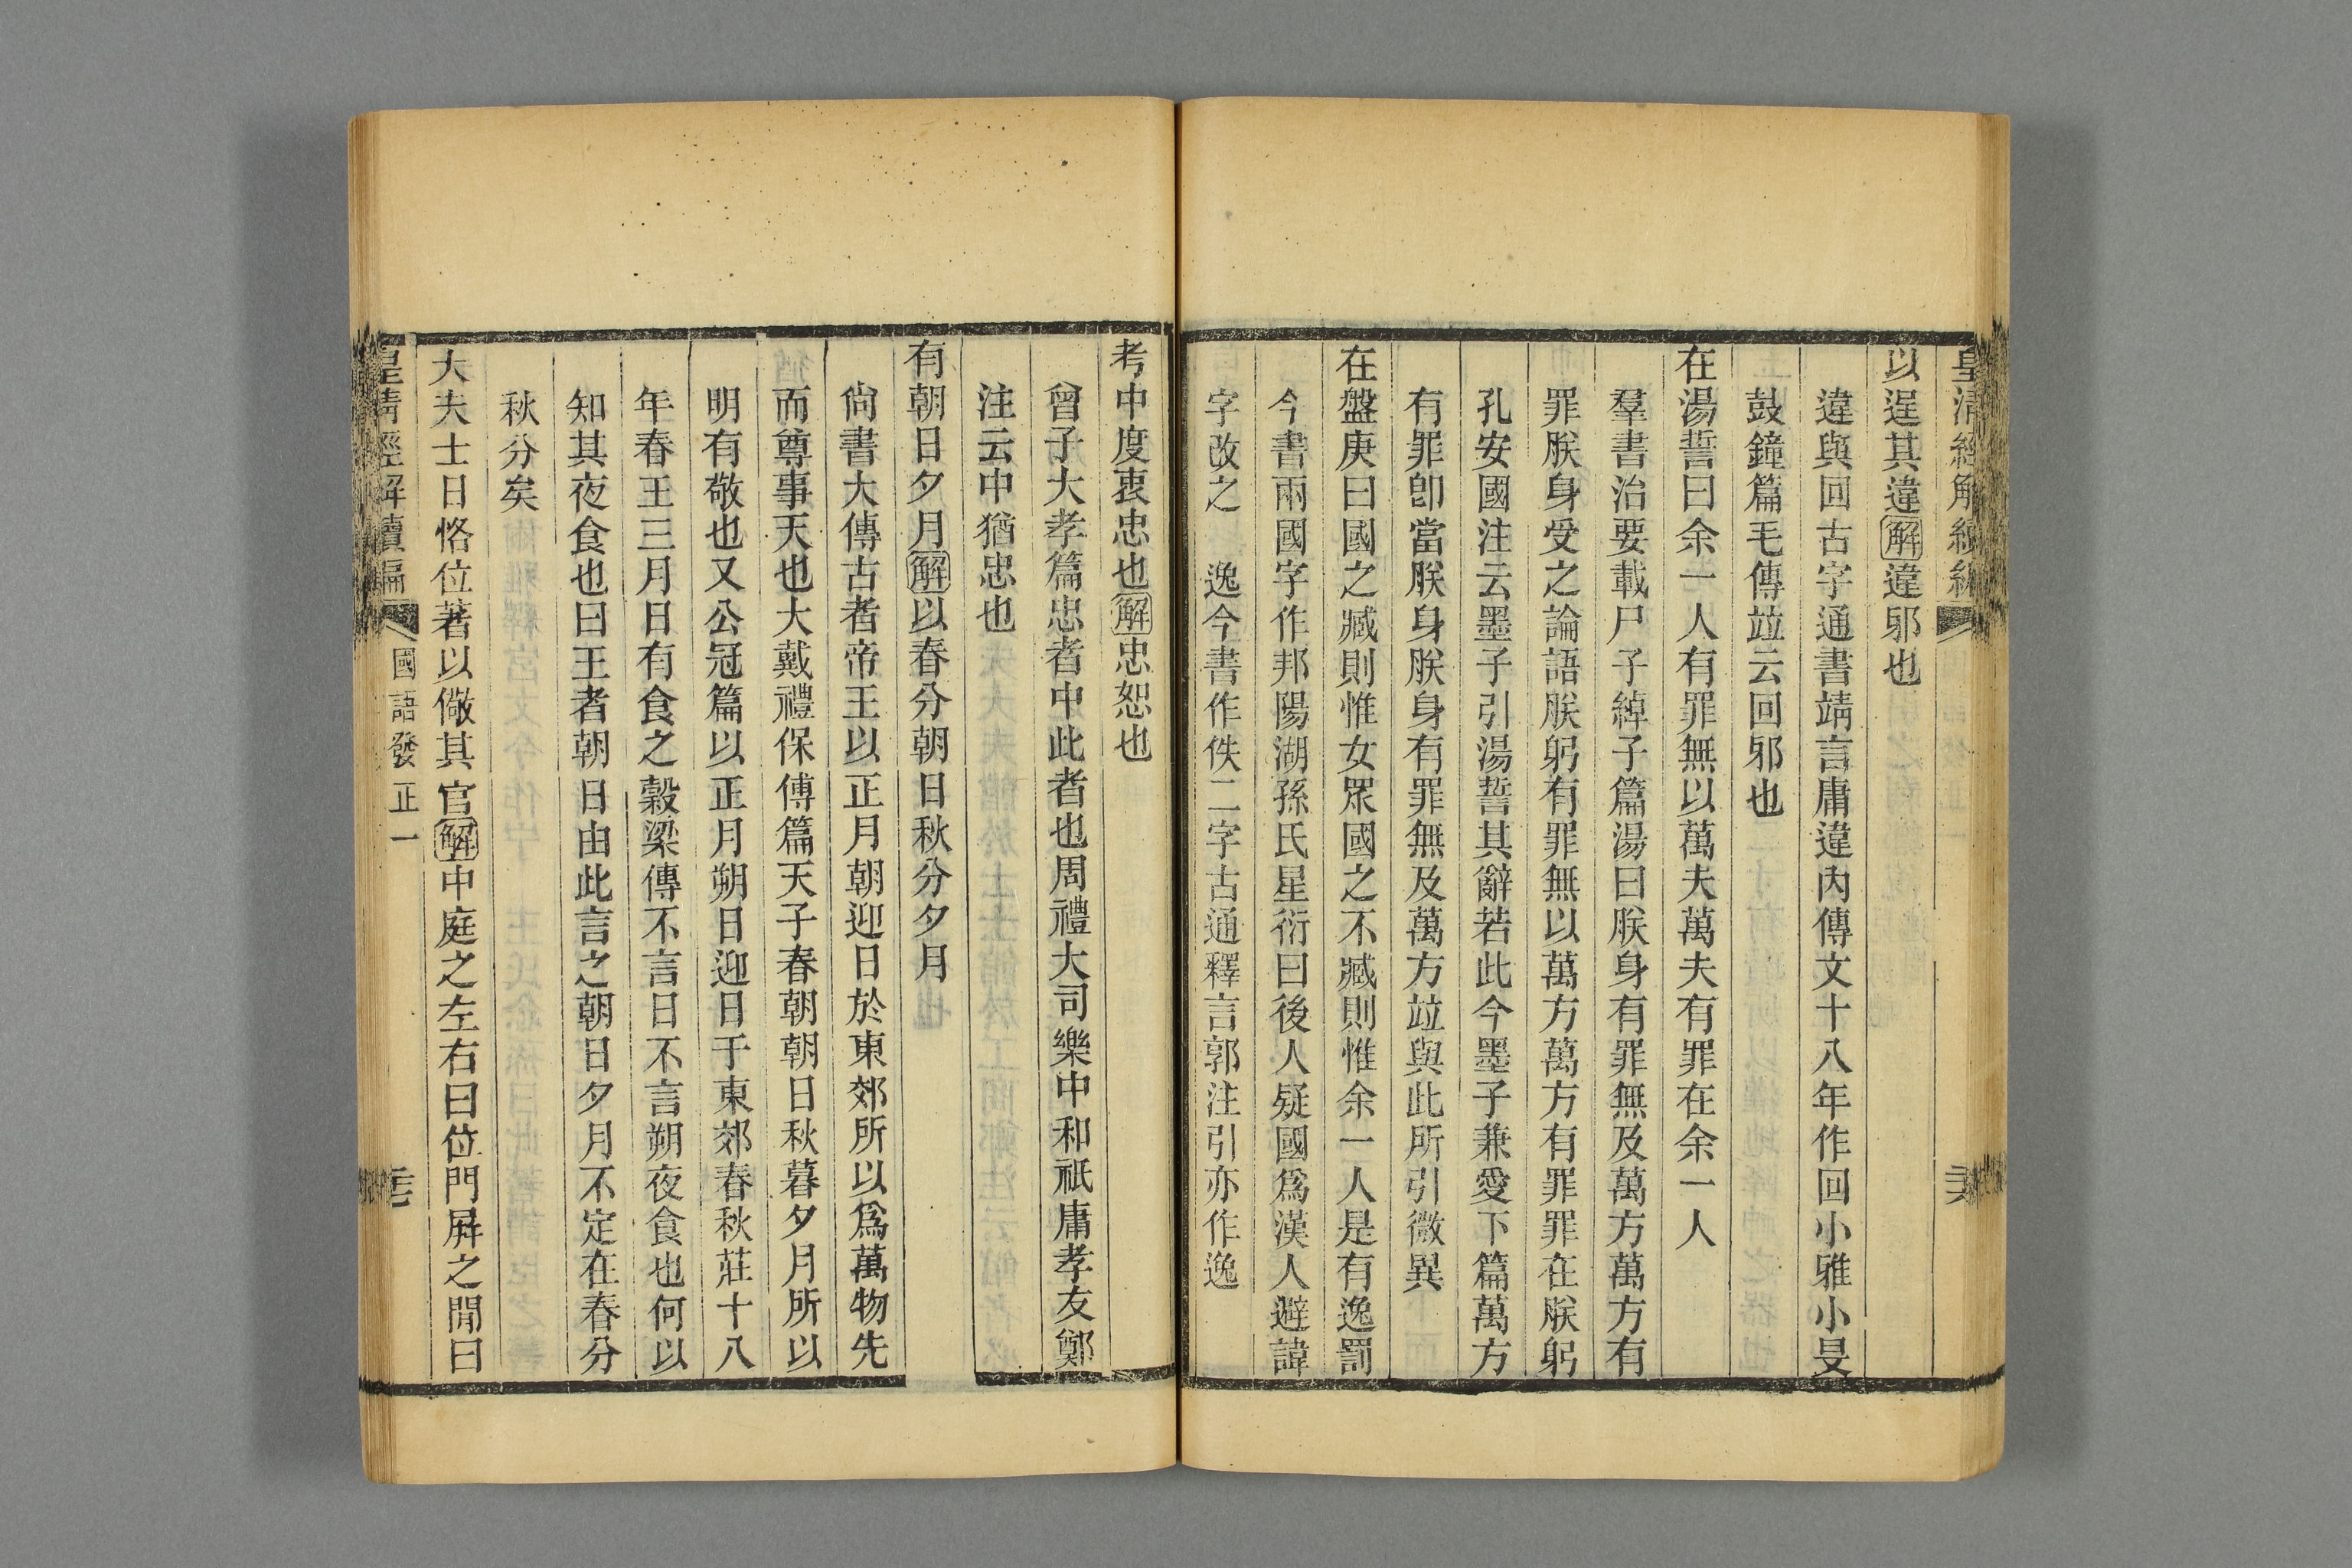 皇清經解續編
以逞其違解違邪也
違與回古字通書靖言庸違內傳文十八年作回小雅小旻
鼓鐘篇毛傳竝云回邪也
在湯誓曰余一人有罪無以萬夫萬夫有罪在余一人
羣書治要載尸子綽子篇湯曰朕身有罪無及萬方萬方有
罪朕身受之論語朕躬有罪無以萬方萬方有罪罪在朕躬
孔安國注云墨子引湯誓其辭若此今墨子兼愛下篇萬方
有罪卽當朕身朕身有罪無及萬方竝與此所引微異
在盤庚曰國之臧則惟女眾國之不臧則惟余一人是有逸罰
今書兩國字作邦陽湖孫氏星衍曰後人疑國爲漢人避諱
字改之　逸今書作佚二字古通釋言郭注引亦作逸
考中度衷忠也解忠恕也
曾子大孝篇忠者中此者也周禮大司樂中和祇庸孝友鄭
注云中猶忠也
有朝日夕月解以春分朝日秋分夕月
尙書大傳古者帝王以正月朝迎日於東郊所以爲萬物先
而尊事天也大戴禮保傅篇天子春朝朝日秋暮夕月所以
明有敬也又公冠篇以正月朔日迎日于東郊春秋莊十八
年春王三月日有食之穀梁傳不言日不言朔夜食也何以
知其夜食也曰王者朝日由此言之朝日夕月不定在春分
秋分矣
大夫士日恪位著以儆其官解中庭之左右曰位門屛之閒曰
皇清經解續編　國語發正一